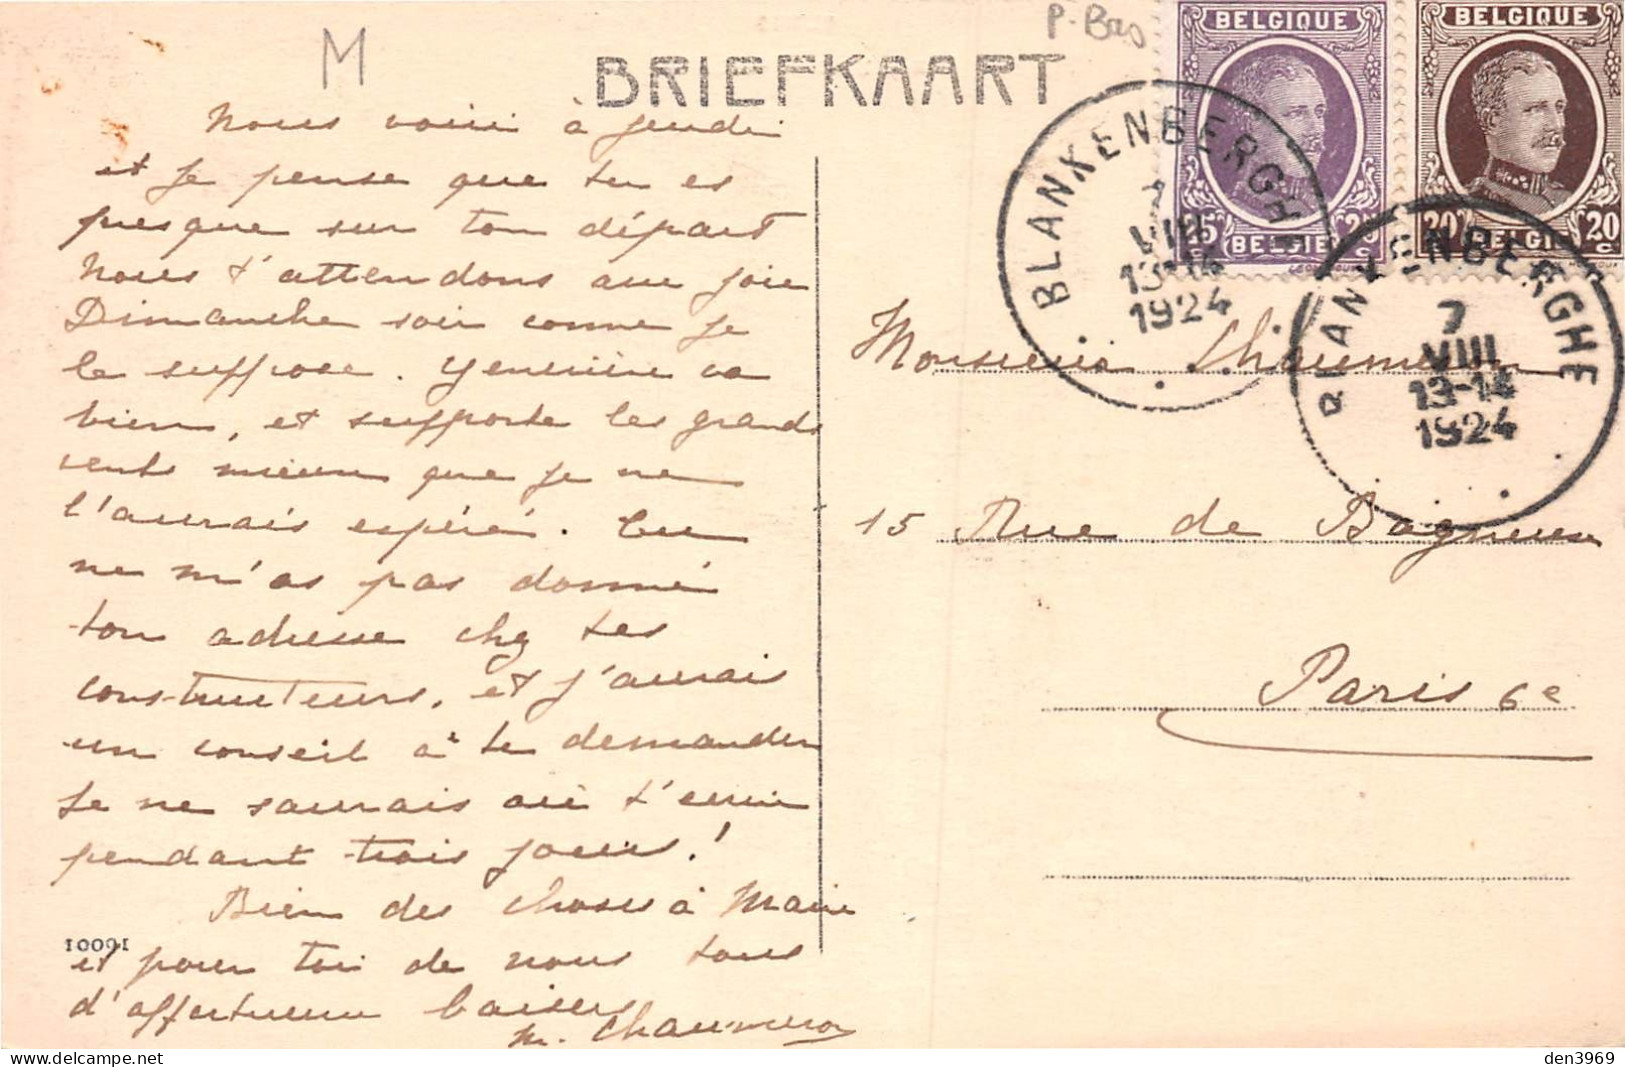 M
P. Bas
BRIEFKAART
BELGIQUE
BELGIQUE
25 BELGIE 25
20 BELGIE 20
BLANKENBERGHE
7
VIII
13-14
1924
BLANKENBERGHE
7
VIII
13-14
1924
Nous voici à jeudi
et je pense que tu es
presque sur ton départ
Nous t'attendons avec joie
Dimanche soir comme je
le suppose. va
bien, et supporte les grands
vents mieux que je ne
l'aurais espéré. Tu
ne m'as pas donné
ton adresse chez tes
constructeurs, et j'aurais
un conseil à te demander
Je ne saurais où t'écrire
pendant trois jours !
Bien des choses à Marie
et pour toi de nous tous
d'affectueux baisers
M. Chaumeron
10091
Monsieur Chaumeron
15 Rue de Bagneux
Paris 6e
den3969